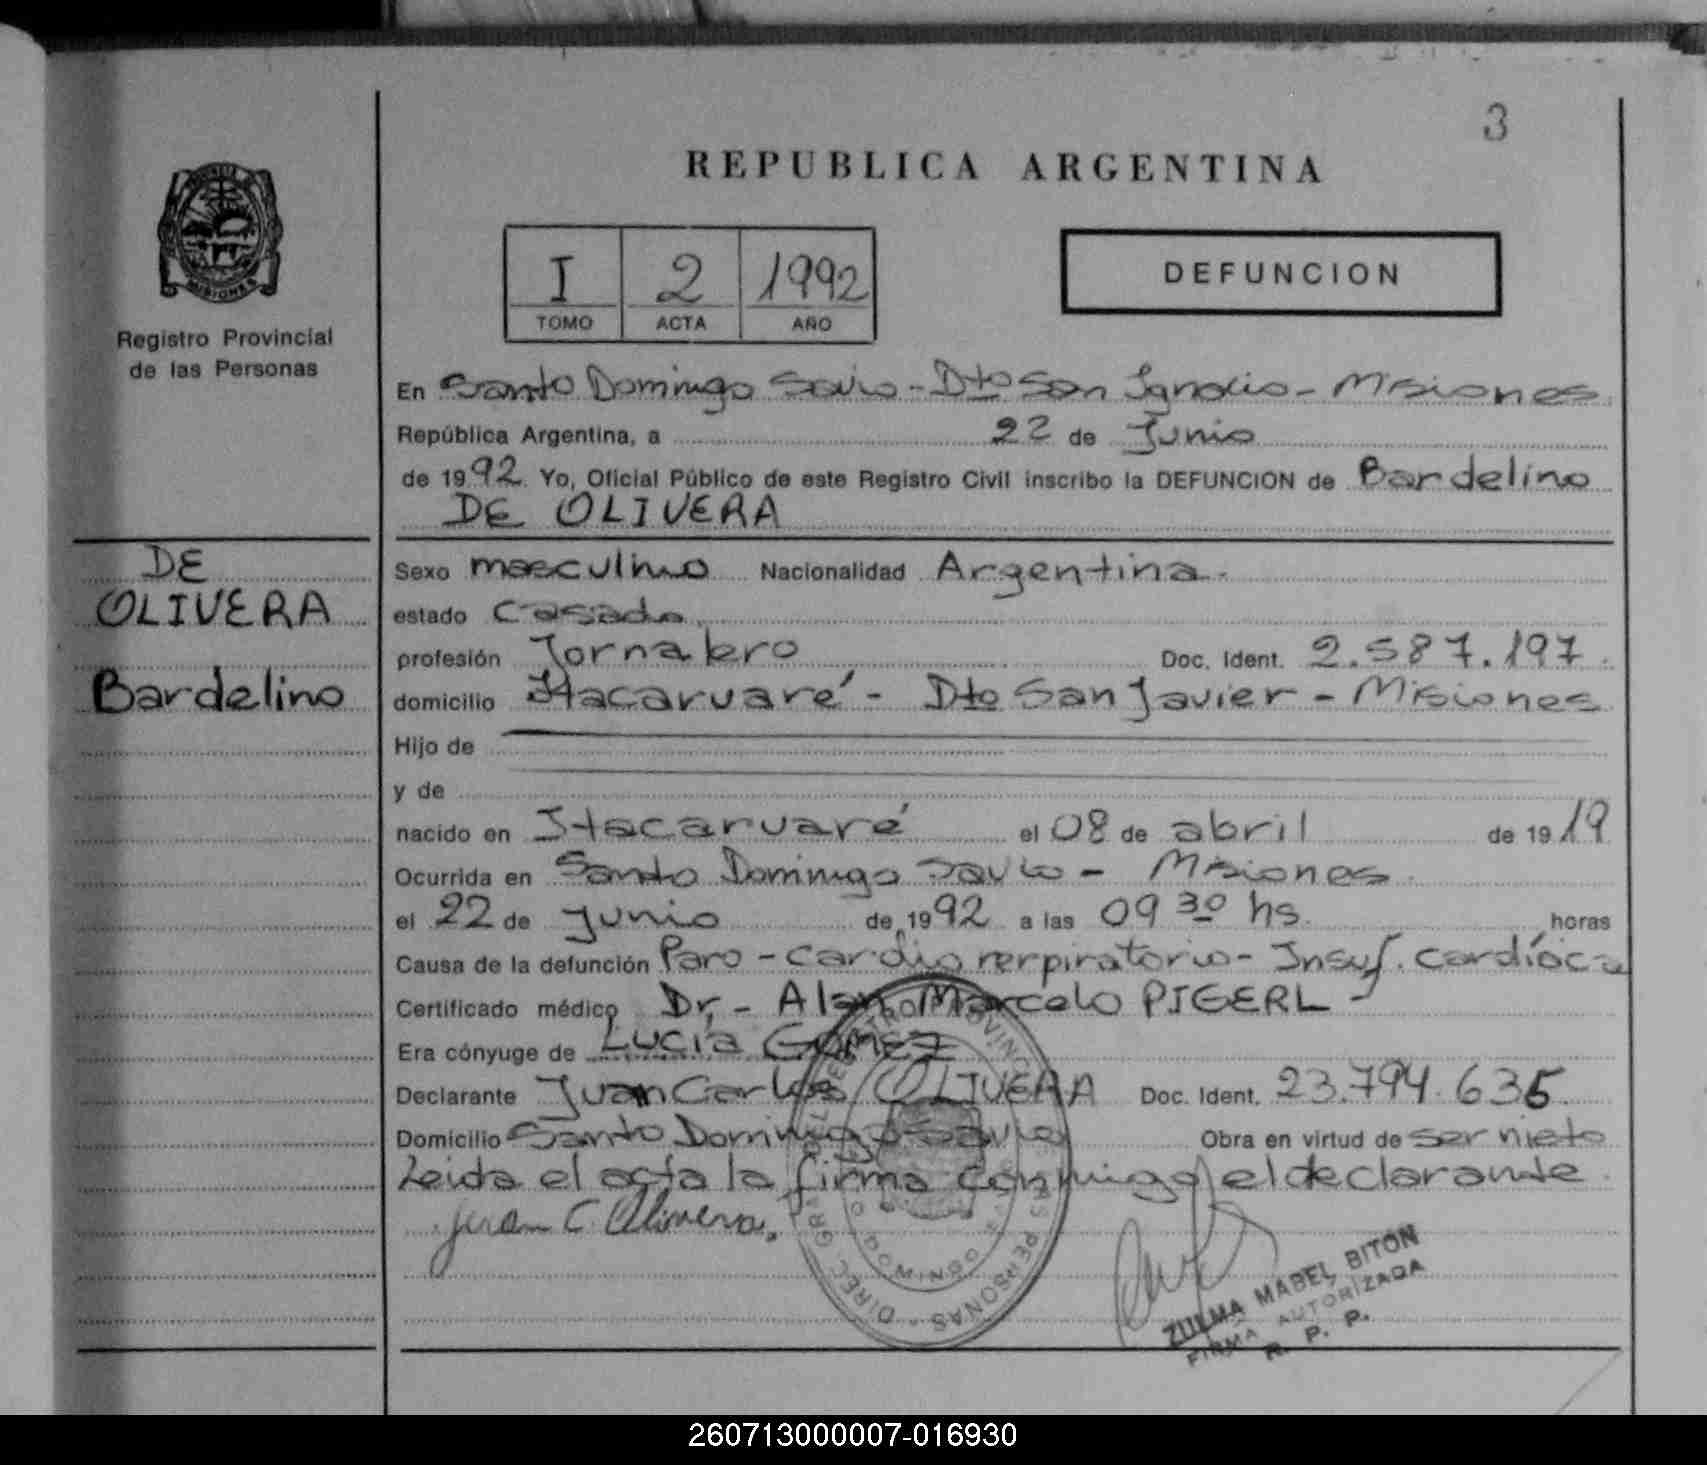 3
REPUBLICA ARGENTINA
MISIONES
Registro Provincial
de las Personas
I 2 1992
TOMO ACTA AÑO
DEFUNCION
En Santo Domingo Savio - Dto San Ignacio - Misiones
República Argentina, a 22 de Junio
de 1992 Yo, Oficial Público de este Registro Civil inscribo la DEFUNCION de Bardelino
DE OLIVERA
DE
OLIVERA
Bardelino
Sexo masculino Nacionalidad Argentina.
estado Casado
profesión Jornalero Doc. Ident. 2.587.197.
domicilio Itacaruaré - Dto San Javier - Misiones
Hijo de
y de
nacido en Itacaruaré el 08 de abril de 1919
Ocurrida en Santo Domingo Savio - Misiones
el 22 de junio de 1992 a las 09 30 hs. horas
Causa de la defunción Paro - cardio rerpiratorio - Insuf. cardíaca
Certificado médico Dr. - Alan Marcelo PIGERL -
Era cónyuge de Lucía GOMEZ
Declarante Juan Carlos OLIVERA Doc. Ident. 23.794.635
Domicilio Santo Domingo Savio Obra en virtud de ser nieto
Leida el acta la firma conmigo el declarante.
Juan C. Olivera.
ZULMA MABEL BITON
FIRMA AUTORIZADA
R. P. P.
260713000007-016930